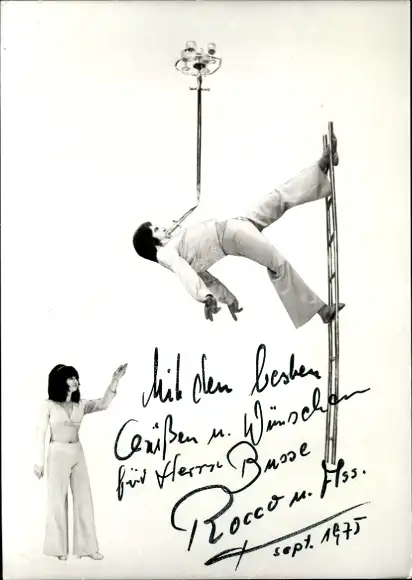 Mit den besten
Grüßen u. Wünschen
für Herrn Busse
Rocco u. Ass.
sept. 1975